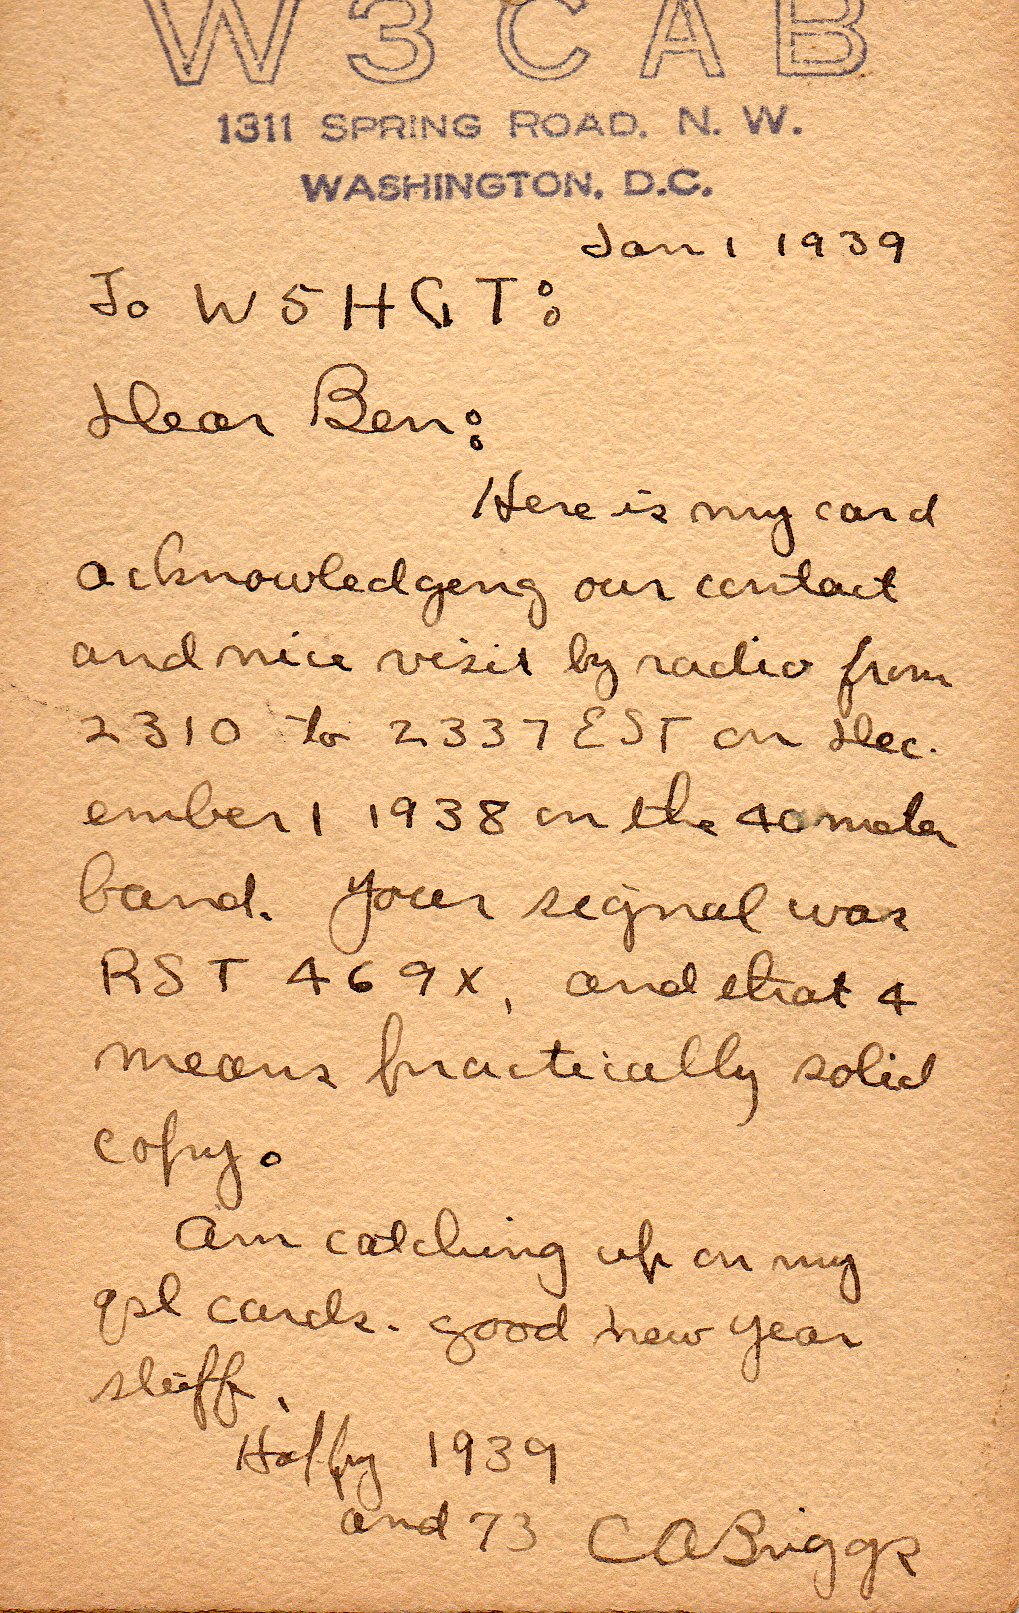 W3CAB
1311 SPRING ROAD. N. W.
WASHINGTON. D.C.
Jan 1 1939
To W5HGT:
Dear Ben:
Here is my card
acknowledgeng our contact
and nice visit by radio from
2310 to 2337 EST on Dec.
ember 1 1938 on the 40 meter
band. Your signal was
RST 469X, and that 4
means practically solid
copy.
Am catching up on my
qsl cards. good new year
stuff.
Happy 1939
and 73 CABriggs